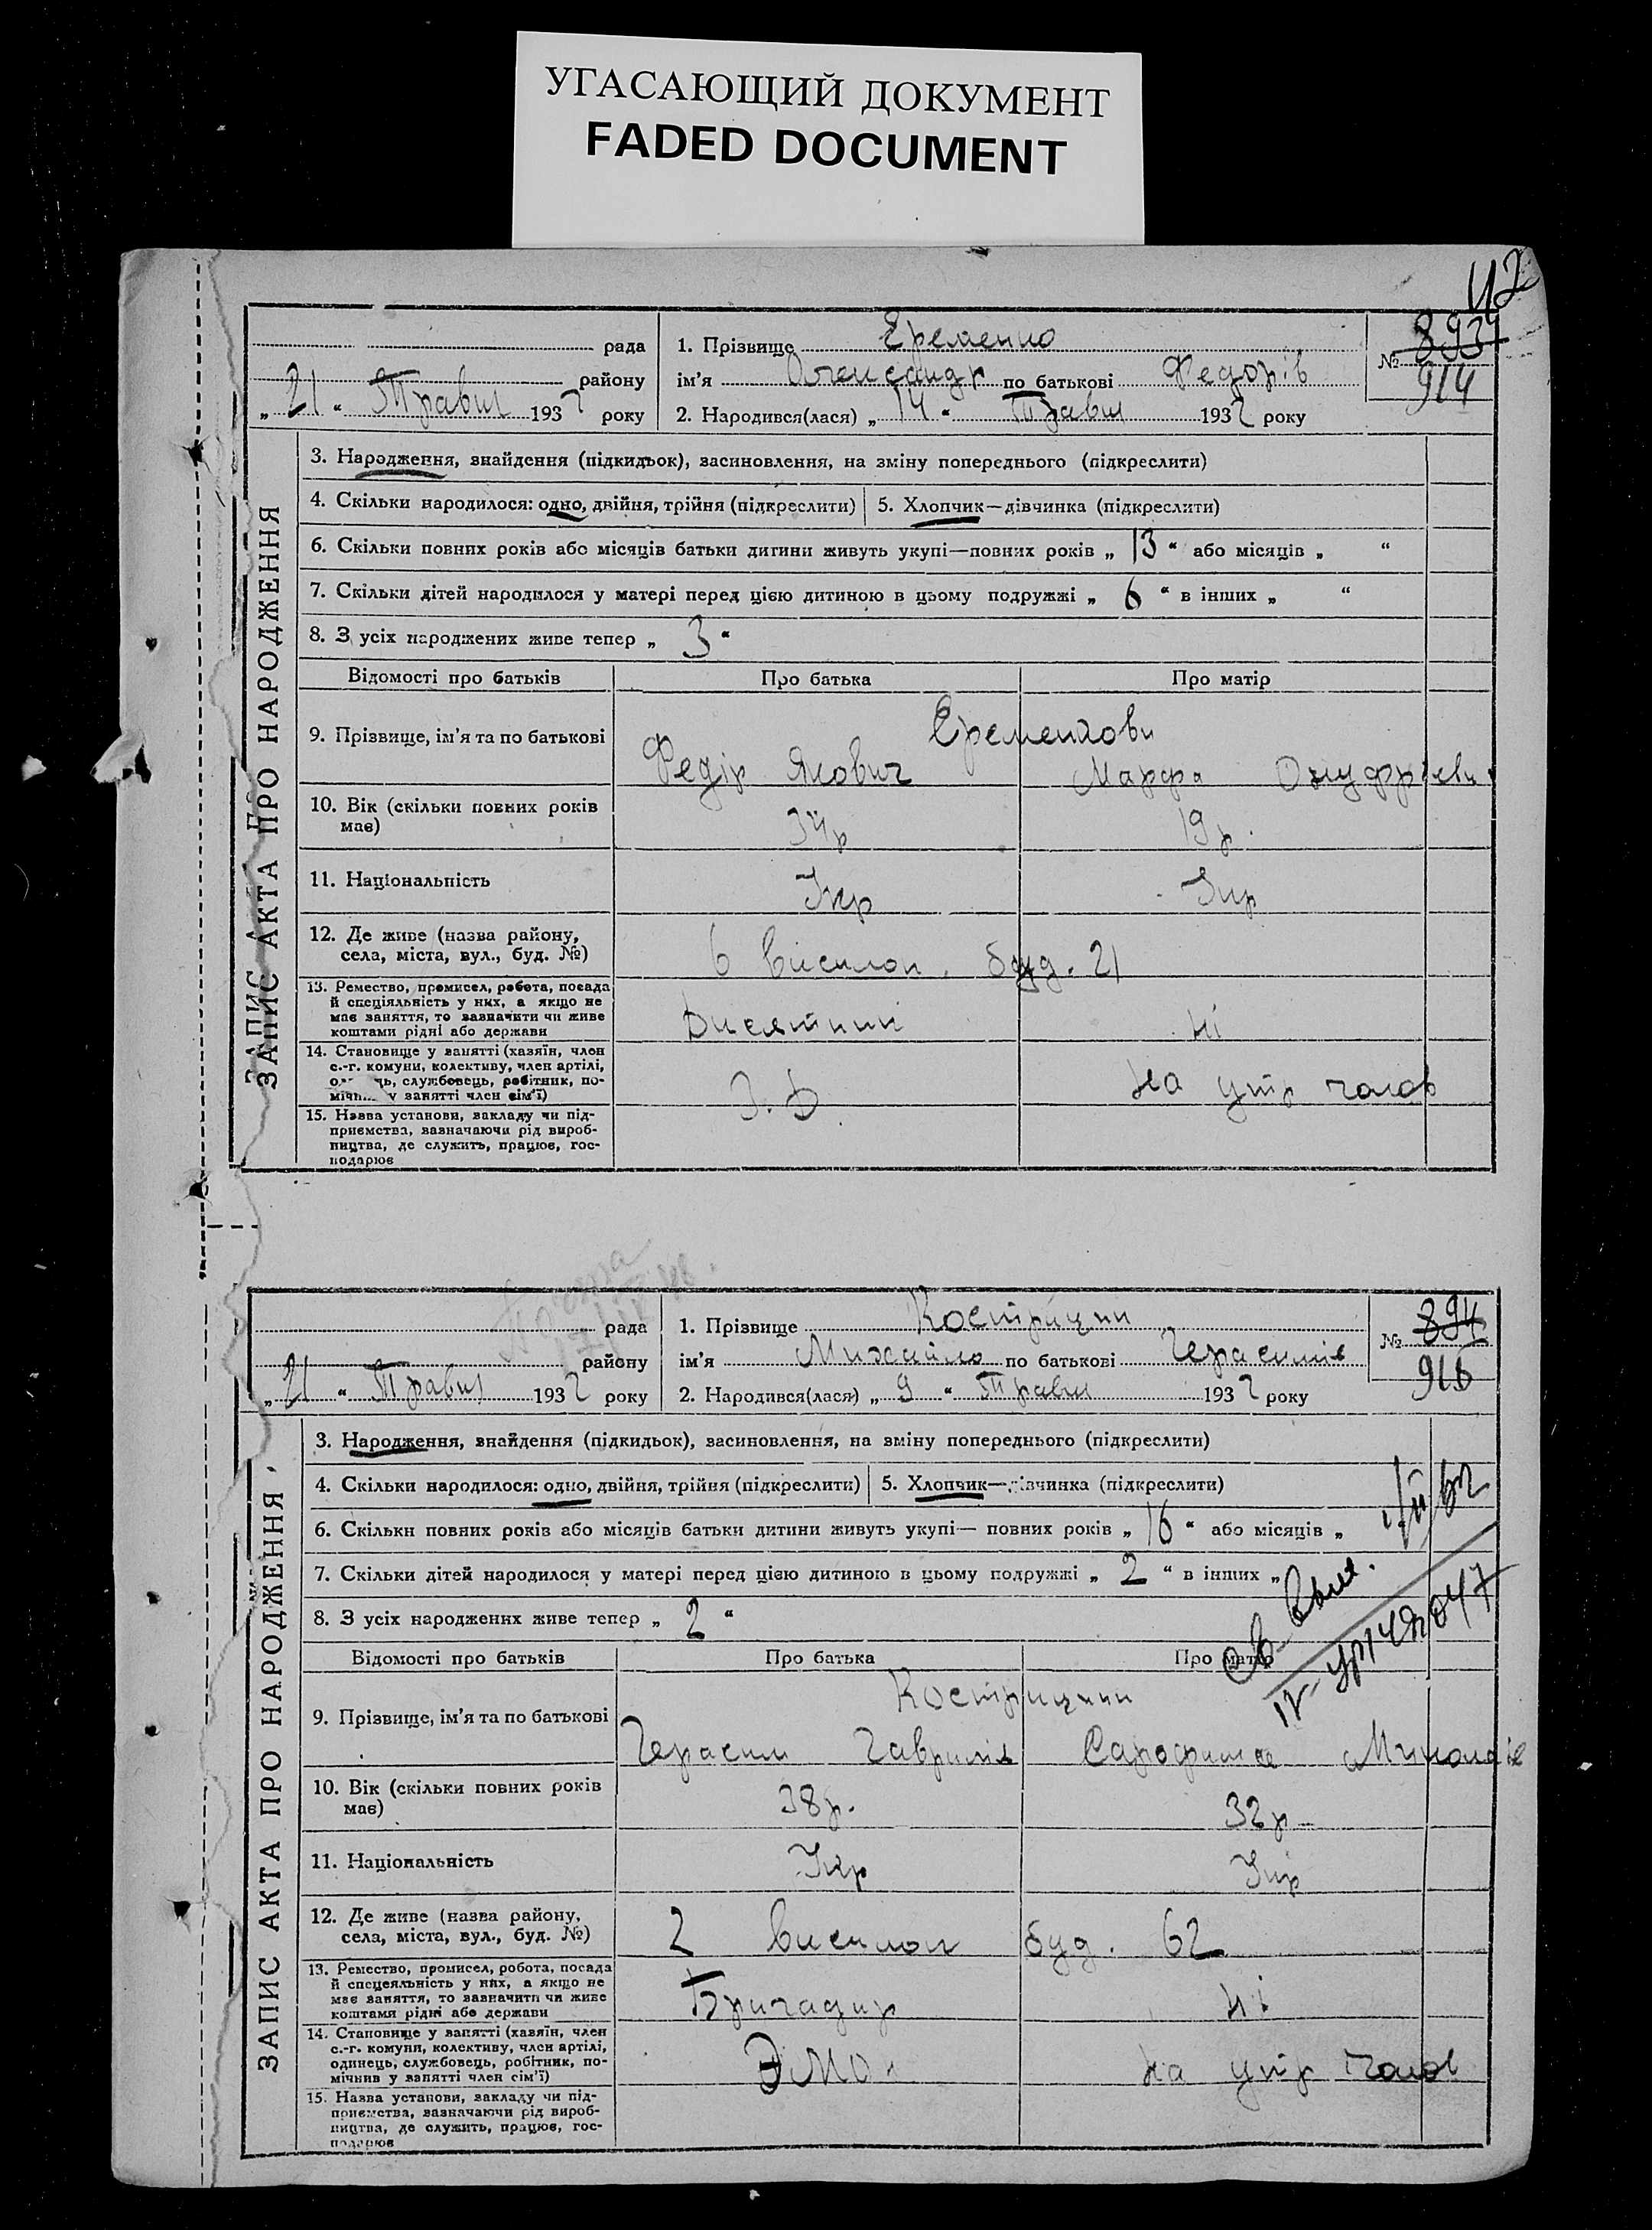 УГАСАЮЩИЙ ДОКУМЕНТ
FADED DOCUMENT
42
рада
району
„ 21 “ Травня 1932 року
1. Прізвище Еременко
ім’я Олександр по батькові Федорів
2. Народився(лася) „ 14 “ Травня 1932 року
№ 893
914
ЗАПИС АКТА ПРО НАРОДЖЕННЯ
3. Народження, знайдення (підкидьок), засиновлення, на зміну попереднього (підкреслити)
4. Скільки народилося: одно, двійня, трійня (підкреслити) 5. Хлопчик—дівчинка (підкреслити)
6. Скільки повних років або місяців батьки дитини живуть укупі—повних років „ 13 “ або місяців „ “
7. Скільки дітей народилося у матері перед цією дитиною в цьому подружжі „ 6 “ в інших „ “
8. З усіх народжених живе тепер „ 3 “
Відомості про батьків Про батька Про матір
Еременкови
9. Прізвище, ім’я та по батькові Федір Якович Марфа
10. Вік (скільки повних років має) 34р 19р.
11. Національність Укр Укр
12. Де живе (назва району, села, міста, вул., буд. №) 6 висилок. буд. 21
13. Ремество, промисел, робота, посада
й спеціяльність у них, а якщо не
має заняття, то зазначити чи живе
коштами рідні або держави
Десятник Ні
14. Становище у занятті (хазяїн, член
с.-г. комуни, колективу, член артілі,
службовець, робітник, по-
у занятті член сім’ї)
На утр чолов
15. Назва установи, закладу чи під-
приємства, зазначаючи рід вироб-
ництва, де служить, працює, гос-
подарює
рада
району
„ 21 “ Травня 1932 року
1. Прізвище Кострицин
ім’я Михайло по батькові Герасимів
2. Народився(лася) „ 9 “ Травня 1932 року
№ 894
915
ЗАПИС АКТА ПРО НАРОДЖЕННЯ
3. Народження, знайдення (підкидьок), засиновлення, на зміну попереднього (підкреслити)
4. Скільки народилося: одно, двійня, трійня (підкреслити) 5. Хлопчик—дівчинка (підкреслити)
6. Скільки повних років або місяців батьки дитини живуть укупі— повних років „ 16 “ або місяців „
7. Скільки дітей народилося у матері перед цією дитиною в цьому подружжі „ 2 “ в інших „
8. З усіх народжених живе тепер „ 2 “
Відомості про батьків Про батька Про матір
Кострицини
9. Прізвище, ім’я та по батькові Герасим Гаврилів
10. Вік (скільки повних років має) 38р. 32р
11. Національність Укр Укр
12. Де живе (назва району, села, міста, вул., буд. №) 2 висилок буд. 62
13. Ремество, промисел, робота, посада
й спецеяльність у них, а якщо не
має заняття, то зазначити чи живе
коштами рідні або держави
Бригадир Ні
14. Становище у занятті (хазяїн, член
с.-г. комуни, колективу, член артілі,
одинець, службовець, робітник, по-
мічнив у занятті член сім’ї)
На утр чолов
15. Назва установи, закладу чи під-
приємства, зазначаючи рід вироб-
ництва, де служить, працює, гос-
подарює